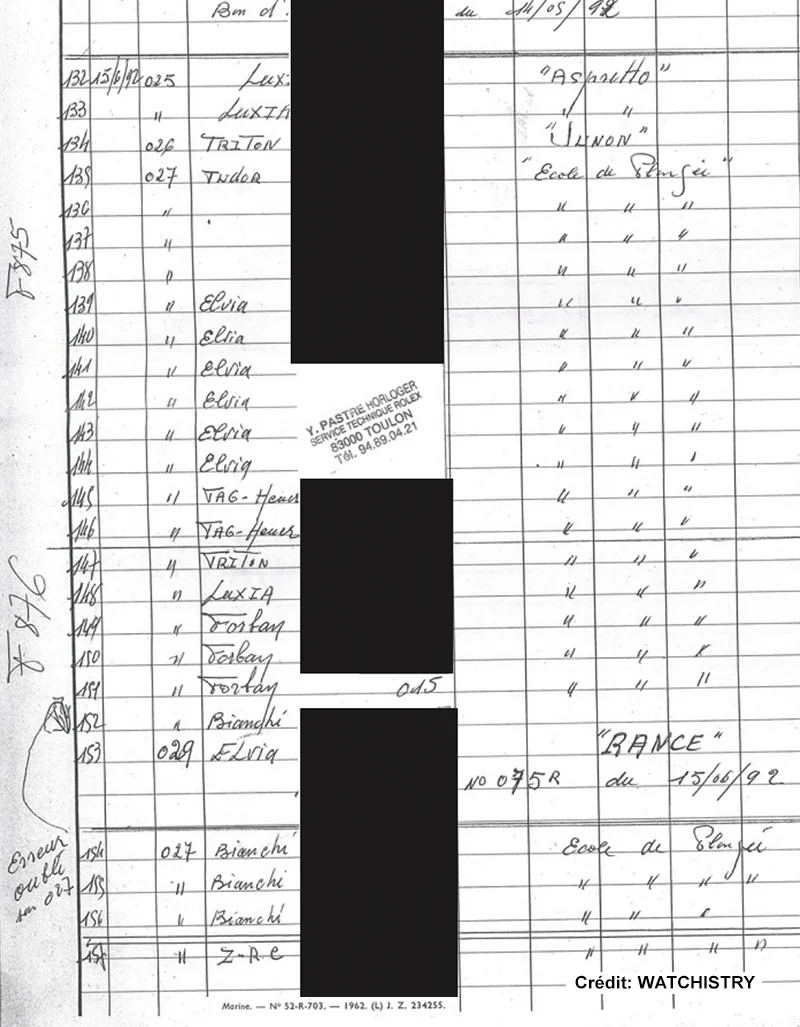 Bon d'. du 14/05/92
132 15/6/92 025 Lux. "Aspretto"
133 " LUXIA " "
134 026 TRITON "JUNON"
135 027 TUDOR "Ecole de Plongée"
136 " " " "
137 " " " "
138 " " " "
139 " Elvia " " "
140 " Elvia " " "
141 " Elvia " " "
142 " Elvia " " "
143 " Elvia " " "
144 " Elvia " " "
Y. PASTRE HORLOGER
SERVICE TECHNIQUE ROLEX
83000 TOULON
Tél. 94.89.04.21
145 " TAG-Heuer " " "
146 " TAG-Heuer " " "
147 " TRITON " " "
148 " LUXIA " " "
149 " Torbay " " "
150 " Torbay " " "
151 " Torbay 015 " " "
152 " Bianchi
153 029 ELvia "RANCE"
NO 075R du 15/06/92
154 027 Bianchi Ecole de Plongée
155 " Bianchi " " " "
156 " Bianchi " " "
157 " Z-R-C " " " "
F 875
F 876
Erreur
oublié
sur 027
Marine. — Nº 52-R-703. — 1962. (L) J. Z. 234255.
Crédit: WATCHISTRY